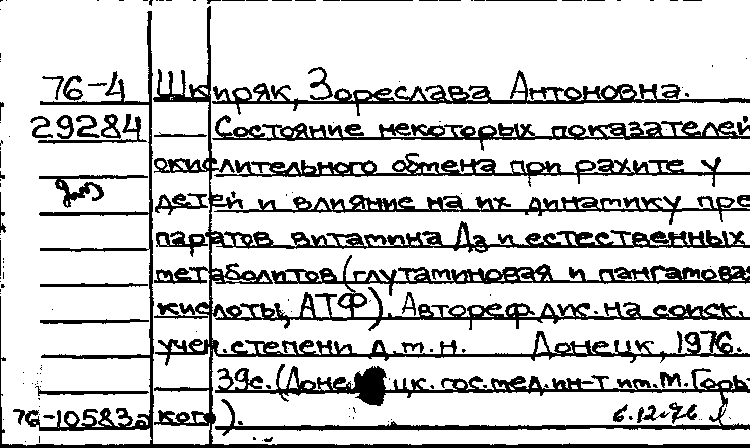 76-4 Шкиряк, Зореслава Антоновна.
29284 Состояние некоторых показателей
окислительного обмена при рахите у
детей и влияние на их динамику пре
паратов витамина Д3 и естественных
метаболитов (глутаминовая и пангамовая
кислоты, АТФ). Автореф.дис.на соиск.
учен.степени д.м.н. Донецк, 1976.
39с. (Донецк. гос.мед.ин-т им.М.Горь
76-10583а кого). 6.12.76